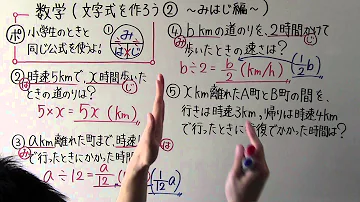 数学(文字式を作ろう② ～みはじ編～)
小学生のときと
同じ公式を使うよ。
み
は じ
②時速5kmで、x時間歩いた
ときの道のりは?
5×x=5x (km)
③akm離れた町まで、時速
で行ったときにかかった時間
a÷12=a/12 (1/12 a)
④bkmの道のりを、2時間かけて
歩いたときの速さは?
b÷2=b/2 (km/h) (1/2 b)
⑤xkm離れたA町とB町の間を、
行きは時速3km、帰りは時速4km
で行ったときに 復でかかった時間は?